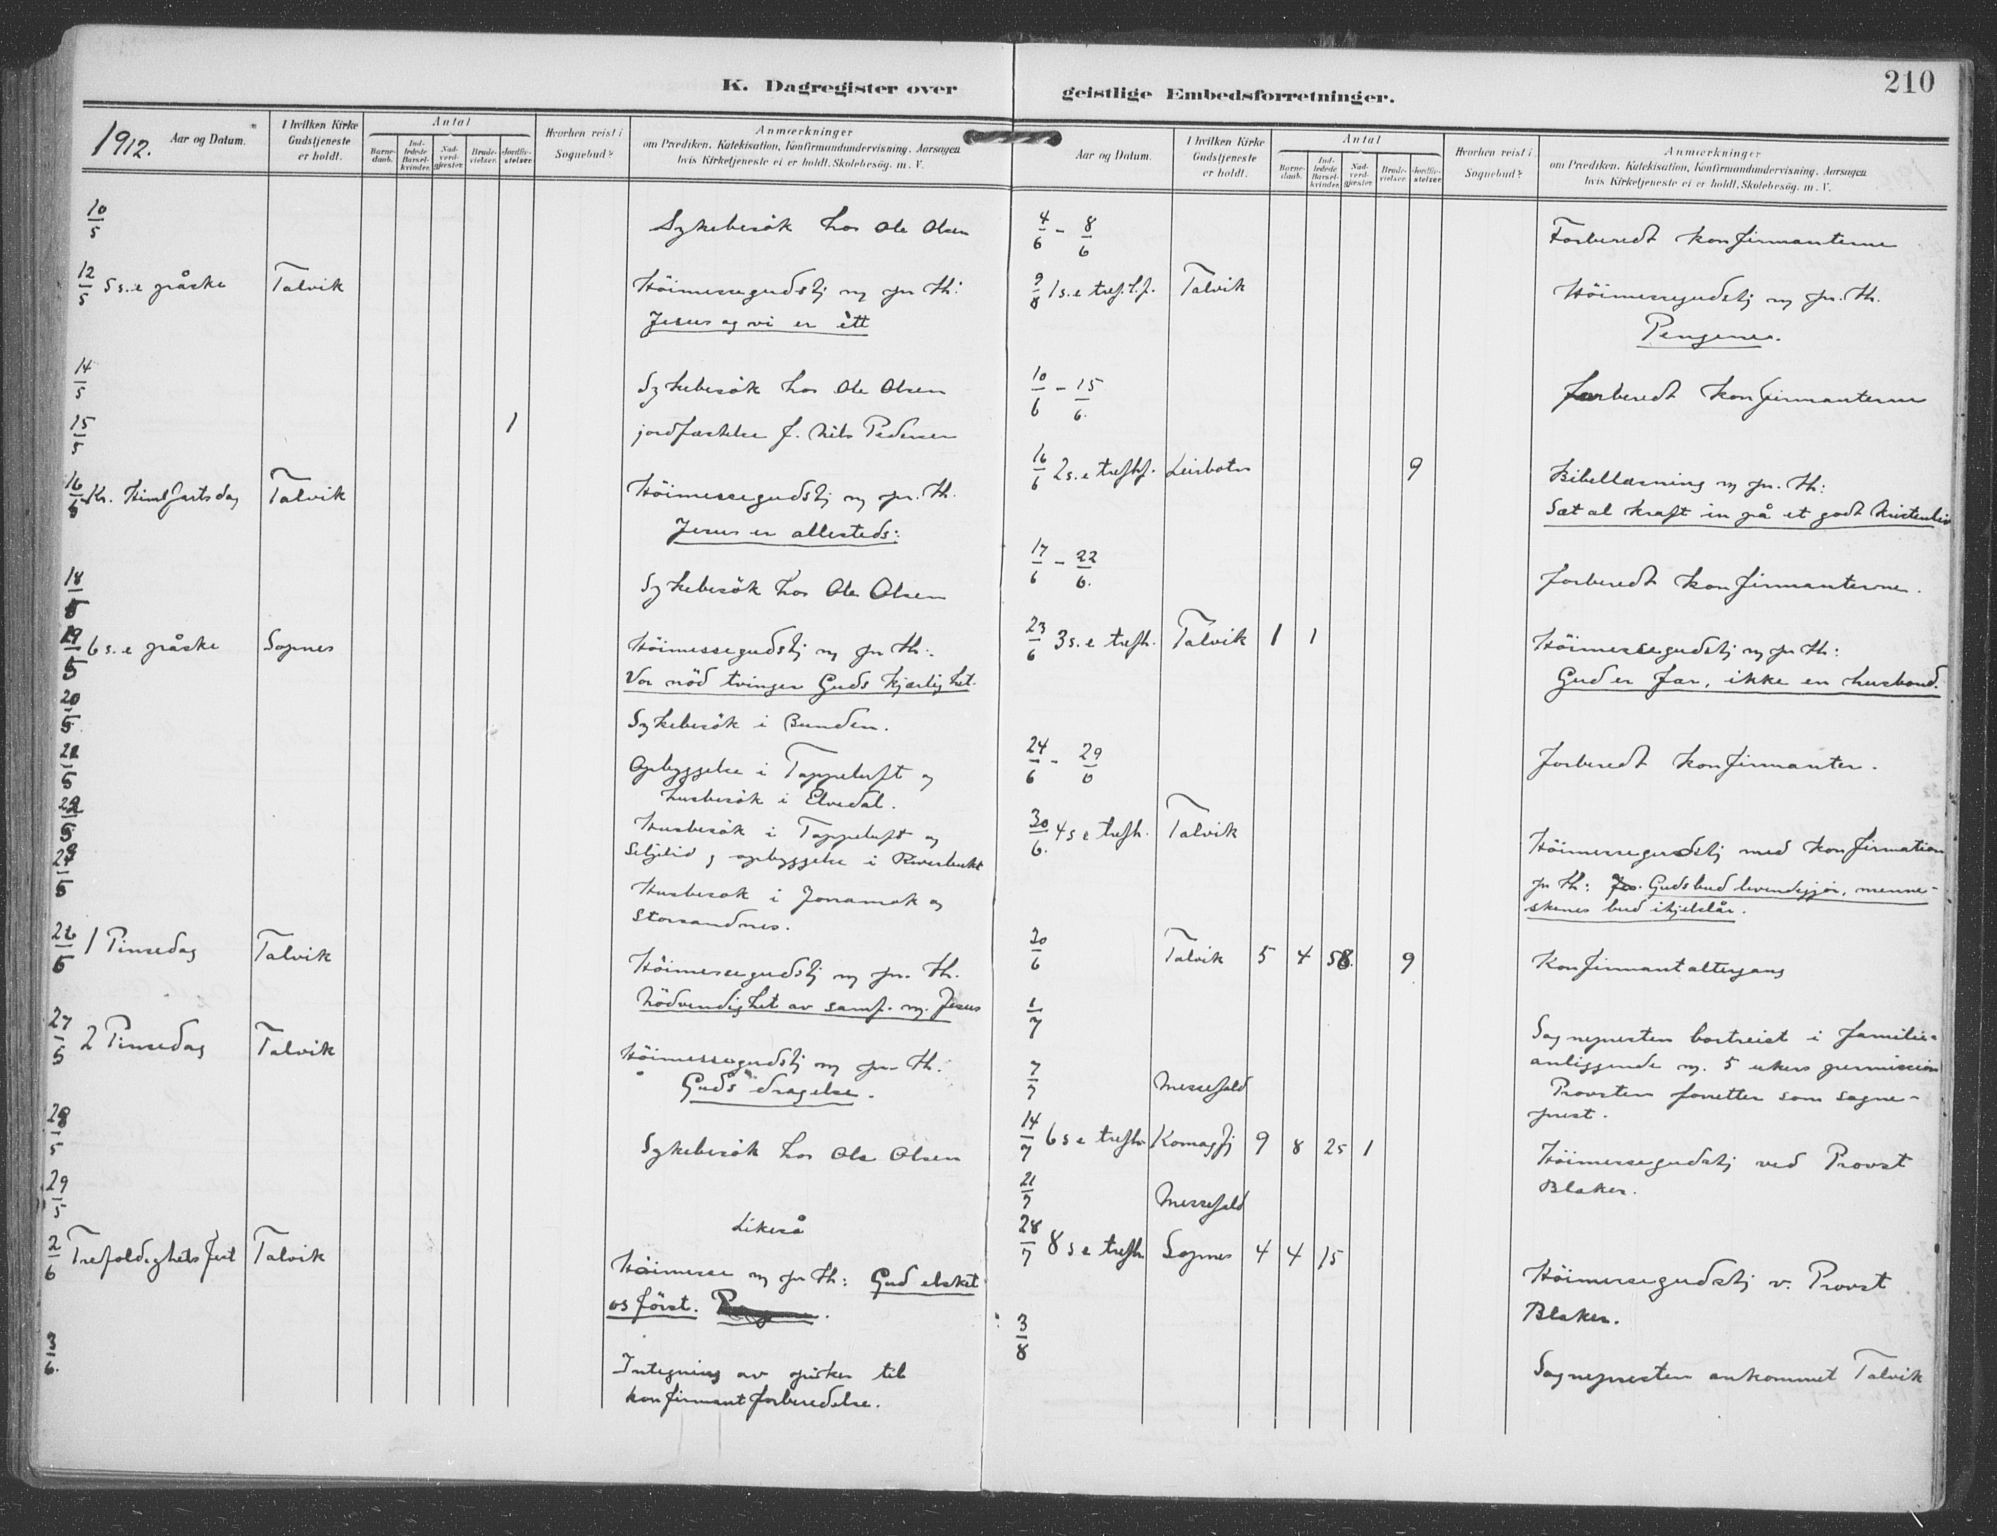 K. Dagregister over
1912.
Aar og Datum.
I hvilken Kirke Gudstjeneste er holdt.
Antal
Barne-daab.
Ind-ledede Barsel-kvinder.
Nad-verd-gjester.
Brude-vielser.
Jordfæ-stelser.
Hvorhen reist i Sognebud?
Anmærkninger
om Prædiken, Katekisation, Konfirmandundervisning, Aarsagen
hvis Kirketjeneste ei er holdt, Skolebesøg. m. V.
10/5 Sykebesök hos Ole Olsen
12/5 5 s. e påske Talvik Höimessegudstj m pr. th:
Jesus og vi er ètt
14/5 Sykebesök hos Ole Olsen
15/5 1 jordfæstelse f. Nils Pedersen
16/5 Kr. Himlfartsdag Talvik Höimessegudstj m pr. th.
Jesus er allesteds:
18/5 Sykebesök hos Ole Olsen
19/5 6 s. e påske Sopnes Höimessegudstj m pr th:
Vor nöd tvinger Guds kjærlighet.
20/5. Sykebesök i Bunden.
Opbyggelse i Tappeluft og
husbesök i Elvedal.
Husbesök i Tappeluft og
Seljelid og opbyggelse i Riverbukt
Husbesök i Jonamok og
Storsandnes.
26/5 1 Pinsedag Talvik Höimessegudstj m pr. th.
Nödvendighet av samf. m. Jesus
27/5 2 Pinsedag Talvik Höimessegudstj m pr. th:
Guds dragelse.
28/5 Sykebesök hos Ole Olsen
29/5 Likeså
2/6 Trefoldighets fest Talvik Höimesse m pr th: Gud elsket
os först.
3/6. Integning av piker til
konfirmantforberedelse.
geistlige Embedsforretninger.
210
Aar og Datum.
I hvilken Kirke Gudstjeneste er holdt.
Antal
Barne-daab.
Ind-ledede Barsel-kvinder.
Nad-verd-gjester
Brude-vielser.
Jordfæ-stelser
Hvorhen reist i Sognebud?
Anmærkninger
om Prædiken, Katekisation, Konfirmandundervisning, Aarsagen
hvis Kirketjeneste ei er holdt, Skolebesøg. m. V.
4/6 - 8/6 Forberedt konfirmanterne
9/6 1 s. e tref. f. Talvik Höimessegudstj m pr. th.
Pengene.
10/6 - 15/6. forberedt konfirmanterne
16/6 2 s. e trefhf. Leirbotn 9 Bibellæsning m pr. th:
Sæt al kraft in på et godt kristenliv
17/6 - 22/6. forberedt konfirmanterne.
23/6 3 s. e trefh. Talvik 1 1 Höimessegudstj m pr th:
Gud er far, ikke en husbond.
24/6 - 29/6 forberedt konfirmanter.
30/6. 4 s e trefh. Talvik Höimessegudstj med konfirmation
pr th: Guds bud levendegjör, menne-
skenes bud ihjelslår.
30/6 Talvik 5 4 58 9 Konfirmantaltergang
1/7 Sognepresten bortreist i familie-
anliggende m. 5 ukers permission
Provsten forretter som sogne-
prest.
7/7 Messefald
14/7 6 s e trefh Komagfj 9 8 25 1 Höimessegudstj ved Provst
Blaker.
21/7 Messefald
28/7 8 s e trefh Sopnes 4 4 15 Höimessegudstj v. Provst
Blaker.
3/8 Sognepresten ankommet Talvik